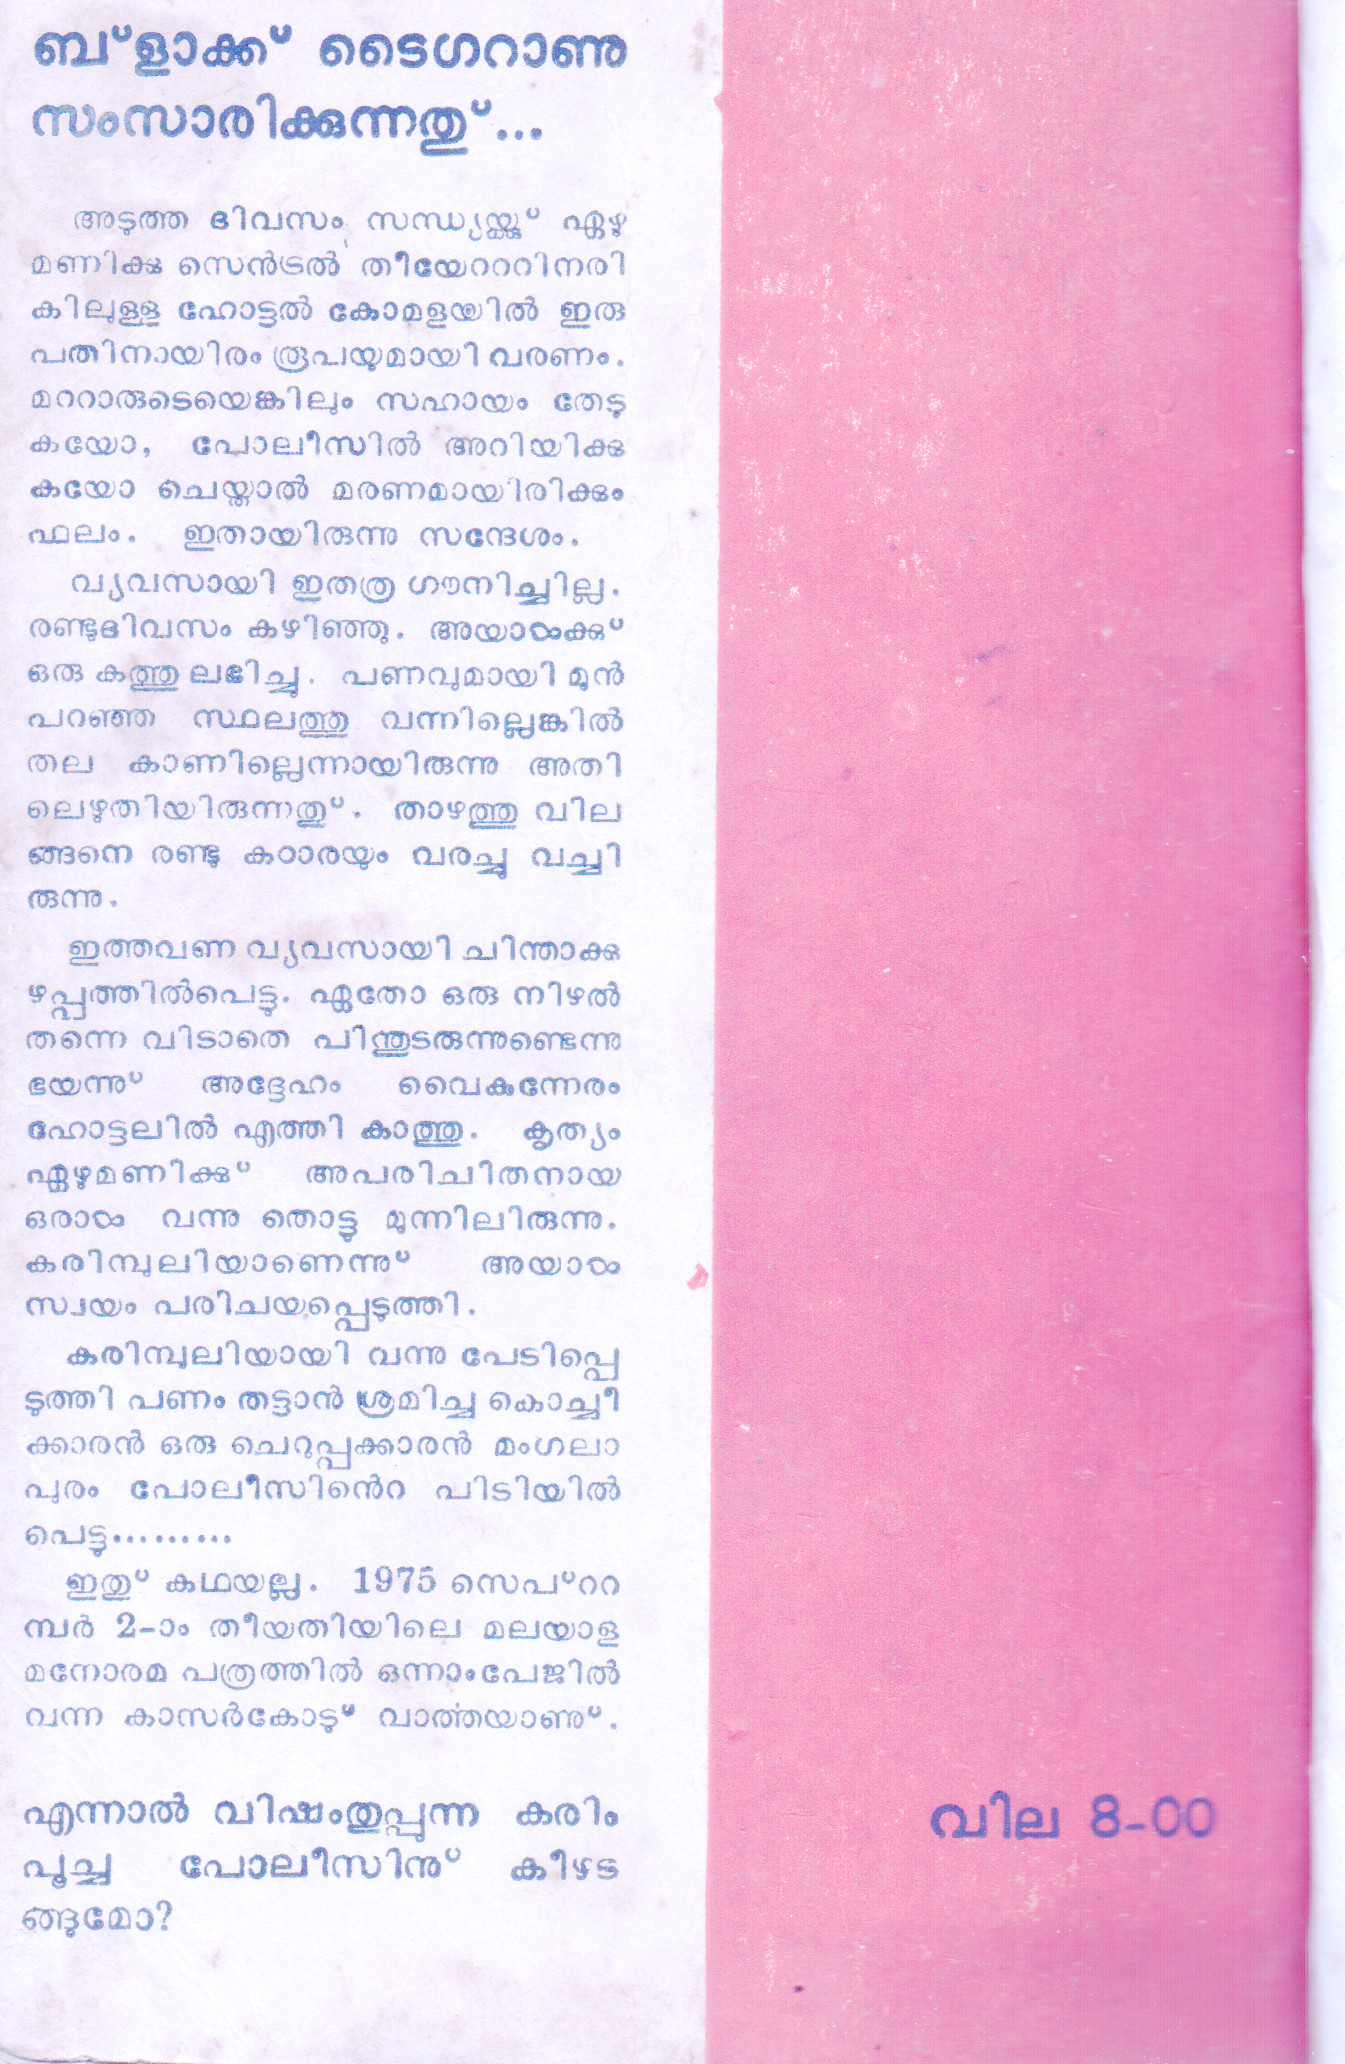 ബ്ളാക്ക് ടൈഗറാണു
സംസാരിക്കുന്നതു്...
അടുത്ത ദിവസം സന്ധ്യയ്ക്കു് ഏഴു
മണിക്കു സെൻട്രൽ തീയേറററിനരി
കിലുള്ള ഹോട്ടൽ കോമളയിൽ ഇരു
പതിനായിരം രൂപയുമായി വരണം.
മററാരുടെയെങ്കിലും സഹായം തേടു
കയോ, പോലീസിൽ അറിയിക്കു
കയോ ചെയ്താൽ മരണമായിരിക്കും
ഫലം. ഇതായിരുന്നു സന്ദേശം.
വ്യവസായി ഇതത്ര ഗൗനിച്ചില്ല.
രണ്ടുദിവസം കഴിഞ്ഞു. അയാൾക്കു്
ഒരു കത്തു ലഭിച്ചു. പണവുമായി മുൻ
പറഞ്ഞ സ്ഥലത്തു വന്നില്ലെങ്കിൽ
തല കാണില്ലെന്നായിരുന്നു അതി
ലെഴുതിയിരുന്നതു്. താഴത്തു വില
ങ്ങനെ രണ്ടു കഠാരയും വരച്ചു വച്ചി
രുന്നു.
ഇത്തവണ വ്യവസായി ചിന്താക്കു
ഴപ്പത്തിൽപെട്ടു. ഏതോ ഒരു നിഴൽ
തന്നെ വിടാതെ പിന്തുടരുന്നുണ്ടെന്നു
ഭയന്നു് അദ്ദേഹം വൈകുന്നേരം
ഹോട്ടലിൽ എത്തി കാത്തു. കൃത്യം
ഏഴുമണിക്കു് അപരിചിതനായ
ഒരാൾ വന്നു തൊട്ടു മുന്നിലിരുന്നു.
കരിമ്പുലിയാണെന്നു് അയാൾ
സ്വയം പരിചയപ്പെടുത്തി.
കരിമ്പുലിയായി വന്നു പേടിപ്പെ
ടുത്തി പണം തട്ടാൻ ശ്രമിച്ച കൊച്ചീ
ക്കാരൻ ഒരു ചെറുപ്പക്കാരൻ മംഗലാ
പുരം പോലീസിൻെറ പിടിയിൽ
പെട്ടു.........
ഇതു് കഥയല്ല. 1975 സെപ്ററ
മ്പർ 2-ാം തീയതിയിലെ മലയാള
മനോരമ പത്രത്തിൽ ഒന്നാംപേജിൽ
വന്ന കാസർകോട്ടു് വാർത്തയാണു്.
എന്നാൽ വിഷംതുപ്പുന്ന കരിം
പൂച്ച പോലീസിനു് കീഴട
ങ്ങുമോ?
വില 8-00